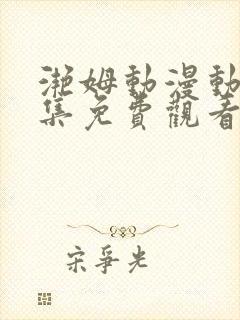 瀧姆動漫動
集免費觀看
宋爭光